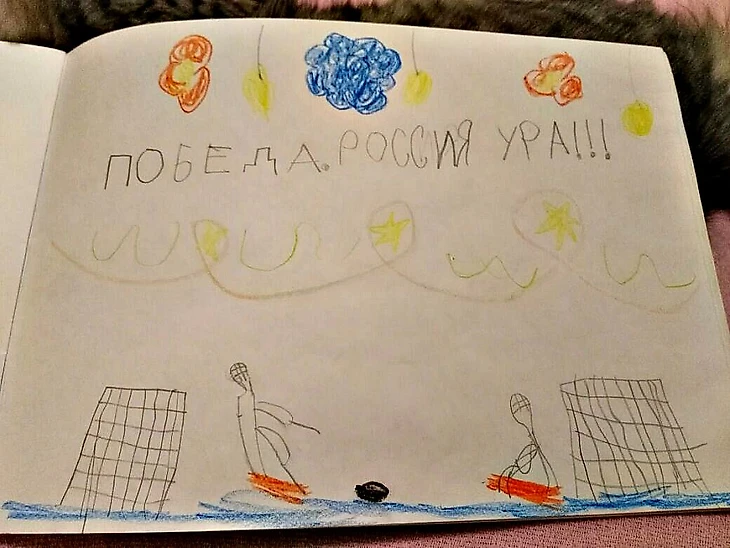 ПОБЕДА.РОССИЯ УРА!!!